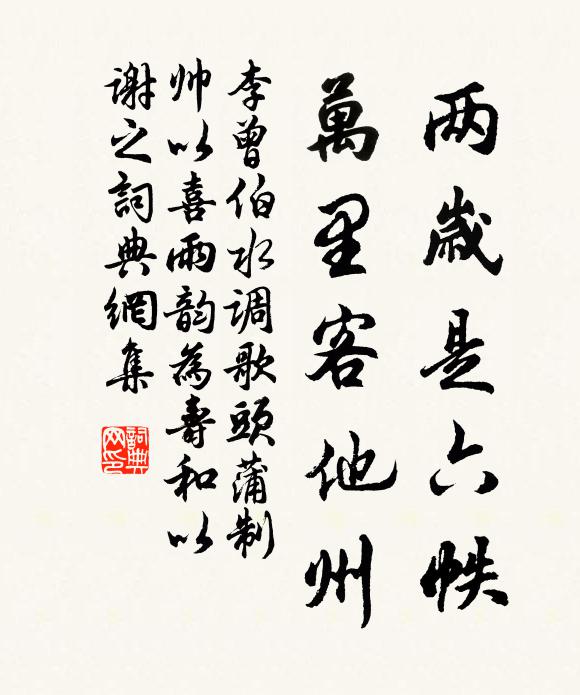 两歲是六帙
萬里客他州
李曾伯水调歌頭蒲制
帅以喜雨韵為壽和以
谢之詞典網集
詞典网印